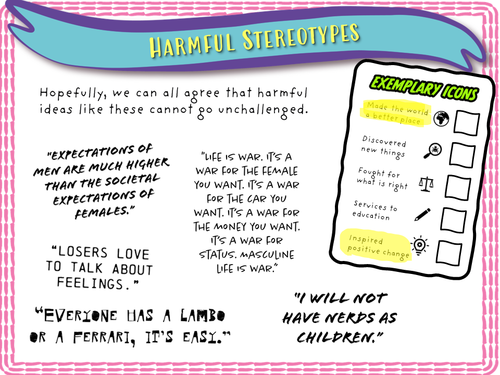 HARMFUL STEREOTYPES
Hopefully, we can all agree that harmful
ideas like these cannot go unchallenged.
"EXPECTATIONS OF
MEN ARE MUCH HIGHER
THAN THE SOCIETAL
EXPECTATIONS OF
FEMALES."
"LIFE IS WAR. IT'S A
WAR FOR THE FEMALE
YOU WANT. IT'S A WAR
FOR THE CAR YOU
WANT. IT'S A WAR FOR
THE MONEY YOU WANT.
IT'S A WAR FOR
STATUS. MASCULINE
LIFE IS WAR."
"LOSERS LOVE
TO TALK ABOUT
FEELINGS."
"EVERYONE HAS A LAMBO
OR A FERRARI, IT'S EASY."
"I WILL NOT
HAVE NERDS AS
CHILDREN."
EXEMPLARY ICONS
Made the world
a better place
Discovered
new things
Fought for
what is right
Services to
education
Inspired
positive change